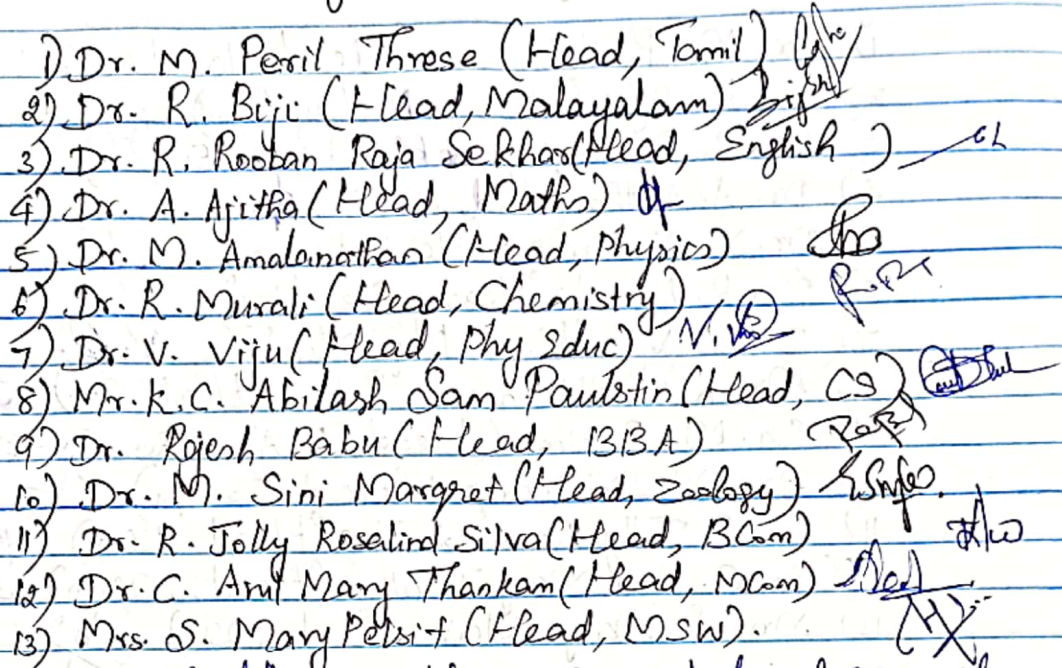 1) Dr. M. Peril Threse (Head, Tamil)
2) Dr. R. Biji (Head, Malayalam)
3) Dr. R. Rooban Raja Sekhar (Head, English)
4) Dr. A. Ajitha (Head, Maths)
5) Dr. M. Amalanathan (Head, Physics)
6) Dr. R. Murali (Head, Chemistry)
7) Dr. V. Viju (Head, Phy Educ)
8) Mr. K.C. Abilash Sam Paulstin (Head, CS)
9) Dr. Rajesh Babu (Head, BBA)
10) Dr. M. Sini Margret (Head, Zoology)
11) Dr. R. Jolly Rosalind Silva (Head, BCom)
12) Dr. C. Arul Mary Thankam (Head, MCom)
13) Mrs. S. Mary Pelsit (Head, MSW).